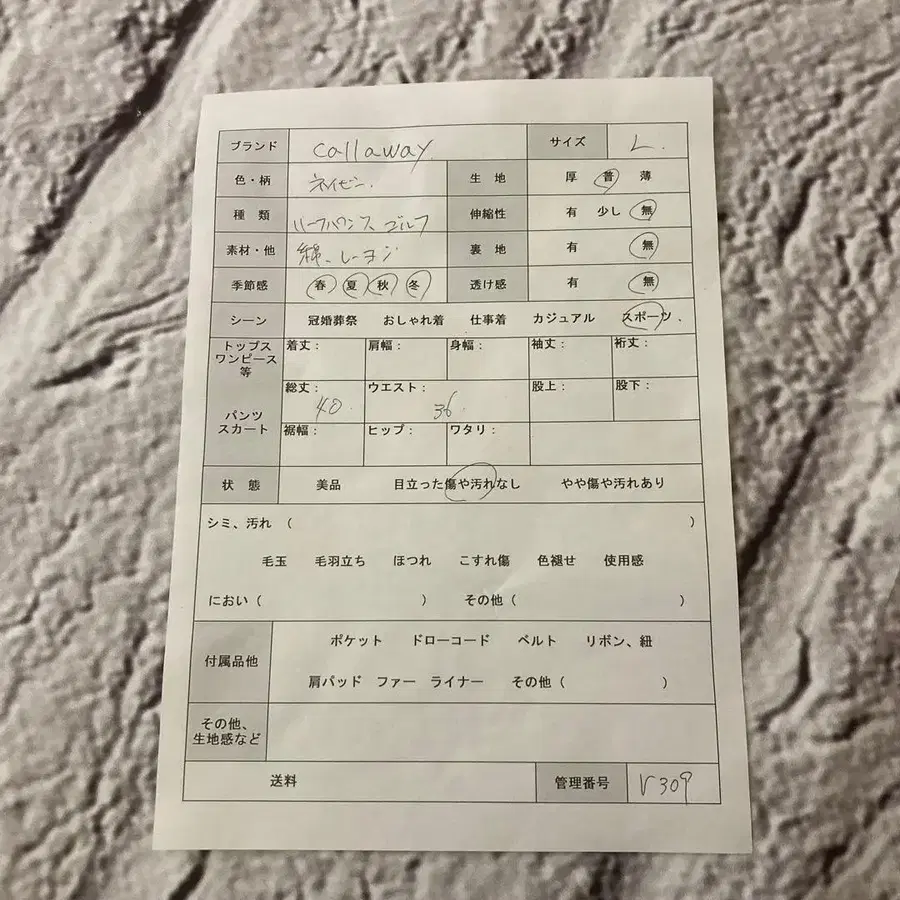 ブランド callaway サイズ L.
色・柄 ネイビー. 生地 厚 普 薄
種類 ハーフパンツ ゴルフ 伸縮性 有 少し 無
素材・他 綿、レーヨン 裏地 有 無
季節感 春 夏 秋 冬 透け感 有 無
シーン 冠婚葬祭 おしゃれ着 仕事着 カジュアル スポーツ.
トップス
ワンピース
等
着丈: 肩幅: 身幅: 袖丈: 裄丈:
総丈: ウエスト: 股上: 股下:
40. 36.
パンツ
スカート
裾幅: ヒップ: ワタリ:
状態 美品 目立った傷や汚れなし やや傷や汚れあり
シミ、汚れ ( )
毛玉 毛羽立ち ほつれ こすれ傷 色褪せ 使用感
におい ( ) その他 ( )
付属品他
ポケット ドローコード ベルト リボン、紐
肩パッド ファー ライナー その他 ( )
その他、
生地感など
送料 管理番号 V309